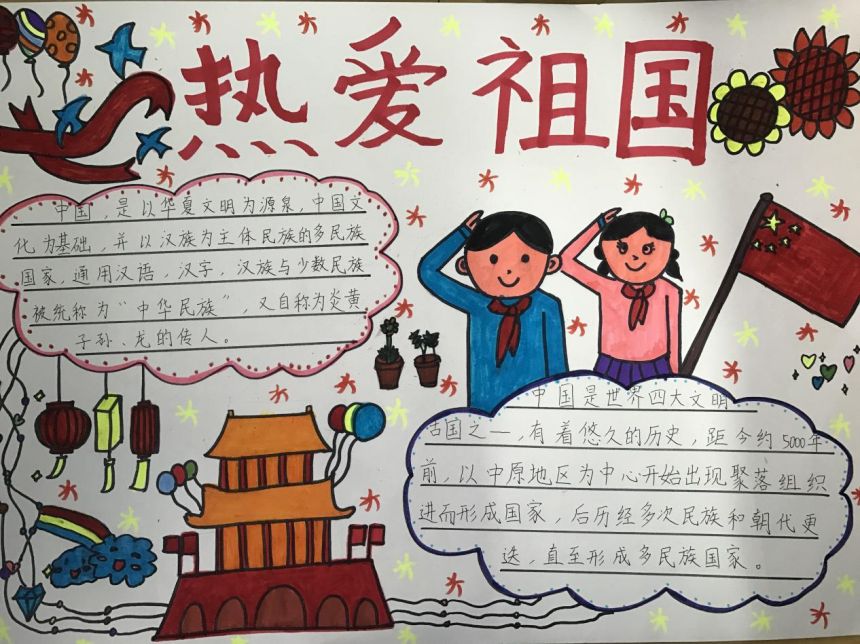 热爱祖国
中国，是以华夏文明为源泉，中国文
化为基础，并以汉族为主体民族的多民族
国家，通用汉语，汉字，汉族与少数民族
被统称为“中华民族”，又自称为炎黄
子孙、龙的传人。
中国是世界四大文明
古国之一，有着悠久的历史，距今约5000年
前，以中原地区为中心开始出现聚落组织
进而形成国家，后历经多次民族和朝代更
迭，直至形成多民族国家。